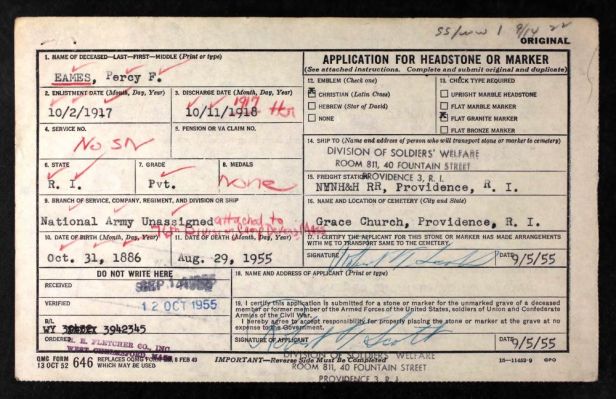 SS/WW 1 9/14 22
ORIGINAL
1. NAME OF DECEASED—LAST—FIRST—MIDDLE (Print or type)
EAMES, Percy F.
2. ENLISTMENT DATE (Month, Day, Year)
3. DISCHARGE DATE (Month, Day, Year)
10/2/1917
10/11/1918
1917
4. SERVICE NO.
5. PENSION OR VA CLAIM NO.
No SN
6. STATE
7. GRADE
8. MEDALS
R. I.
Pvt.
None
9. BRANCH OF SERVICE, COMPANY, REGIMENT, AND DIVISION OR SHIP
National Army Unassigned attached to
76th Camp Devens Mass
10. DATE OF BIRTH (Month, Day, Year)
11. DATE OF DEATH (Month, Day, Year)
Oct. 31, 1886
Aug. 29, 1955
DO NOT WRITE HERE
RECEIVED
VERIFIED
12 OCT 1955
B/L
WY 3942345
ORDERED
H. E. FLETCHER CO., INC.
WEST CHELMSFORD, MASS.
APPLICATION FOR HEADSTONE OR MARKER
(See attached instructions. Complete and submit original and duplicate)
12. EMBLEM (Check one)
X CHRISTIAN (Latin Cross)
HEBREW (Star of David)
NONE
13. CHECK TYPE REQUIRED
UPRIGHT MARBLE HEADSTONE
FLAT MARBLE MARKER
X FLAT GRANITE MARKER
FLAT BRONZE MARKER
14. SHIP TO (Name and address of person who will transport stone or marker to cemetery)
DIVISION OF SOLDIERS' WELFARE
ROOM 811, 40 FOUNTAIN STREET
PROVIDENCE 3, R. I.
15. FREIGHT STATION
NYNH&H RR, Providence, R. I.
16. NAME AND LOCATION OF CEMETERY (City and State)
Grace Church, Providence, R. I.
17. I CERTIFY THE APPLICANT FOR THIS STONE OR MARKER HAS MADE ARRANGEMENTS
WITH ME TO TRANSPORT SAME TO THE CEMETERY.
SIGNATURE
DATE 9/5/55
18. NAME AND ADDRESS OF APPLICANT (Print or type)
19. I certify this application is submitted for a stone or marker for the unmarked grave of a deceased
member or former member of the Armed Forces of the United States, soldiers of Union and Confederate
Armies of the Civil War.
I hereby agree to accept responsibility for properly placing the stone or marker at the grave at no
expense to the Government.
SIGNATURE OF APPLICANT
Robert Scott
DATE 9/5/55
DIVISION OF SOLDIERS' WELFARE
ROOM 811, 40 FOUNTAIN STREET
PROVIDENCE 3, R. I.
QMC FORM
13 OCT 52
646
WHICH MAY BE USED.
IMPORTANT—Reverse Side Must Be Completed
GPO